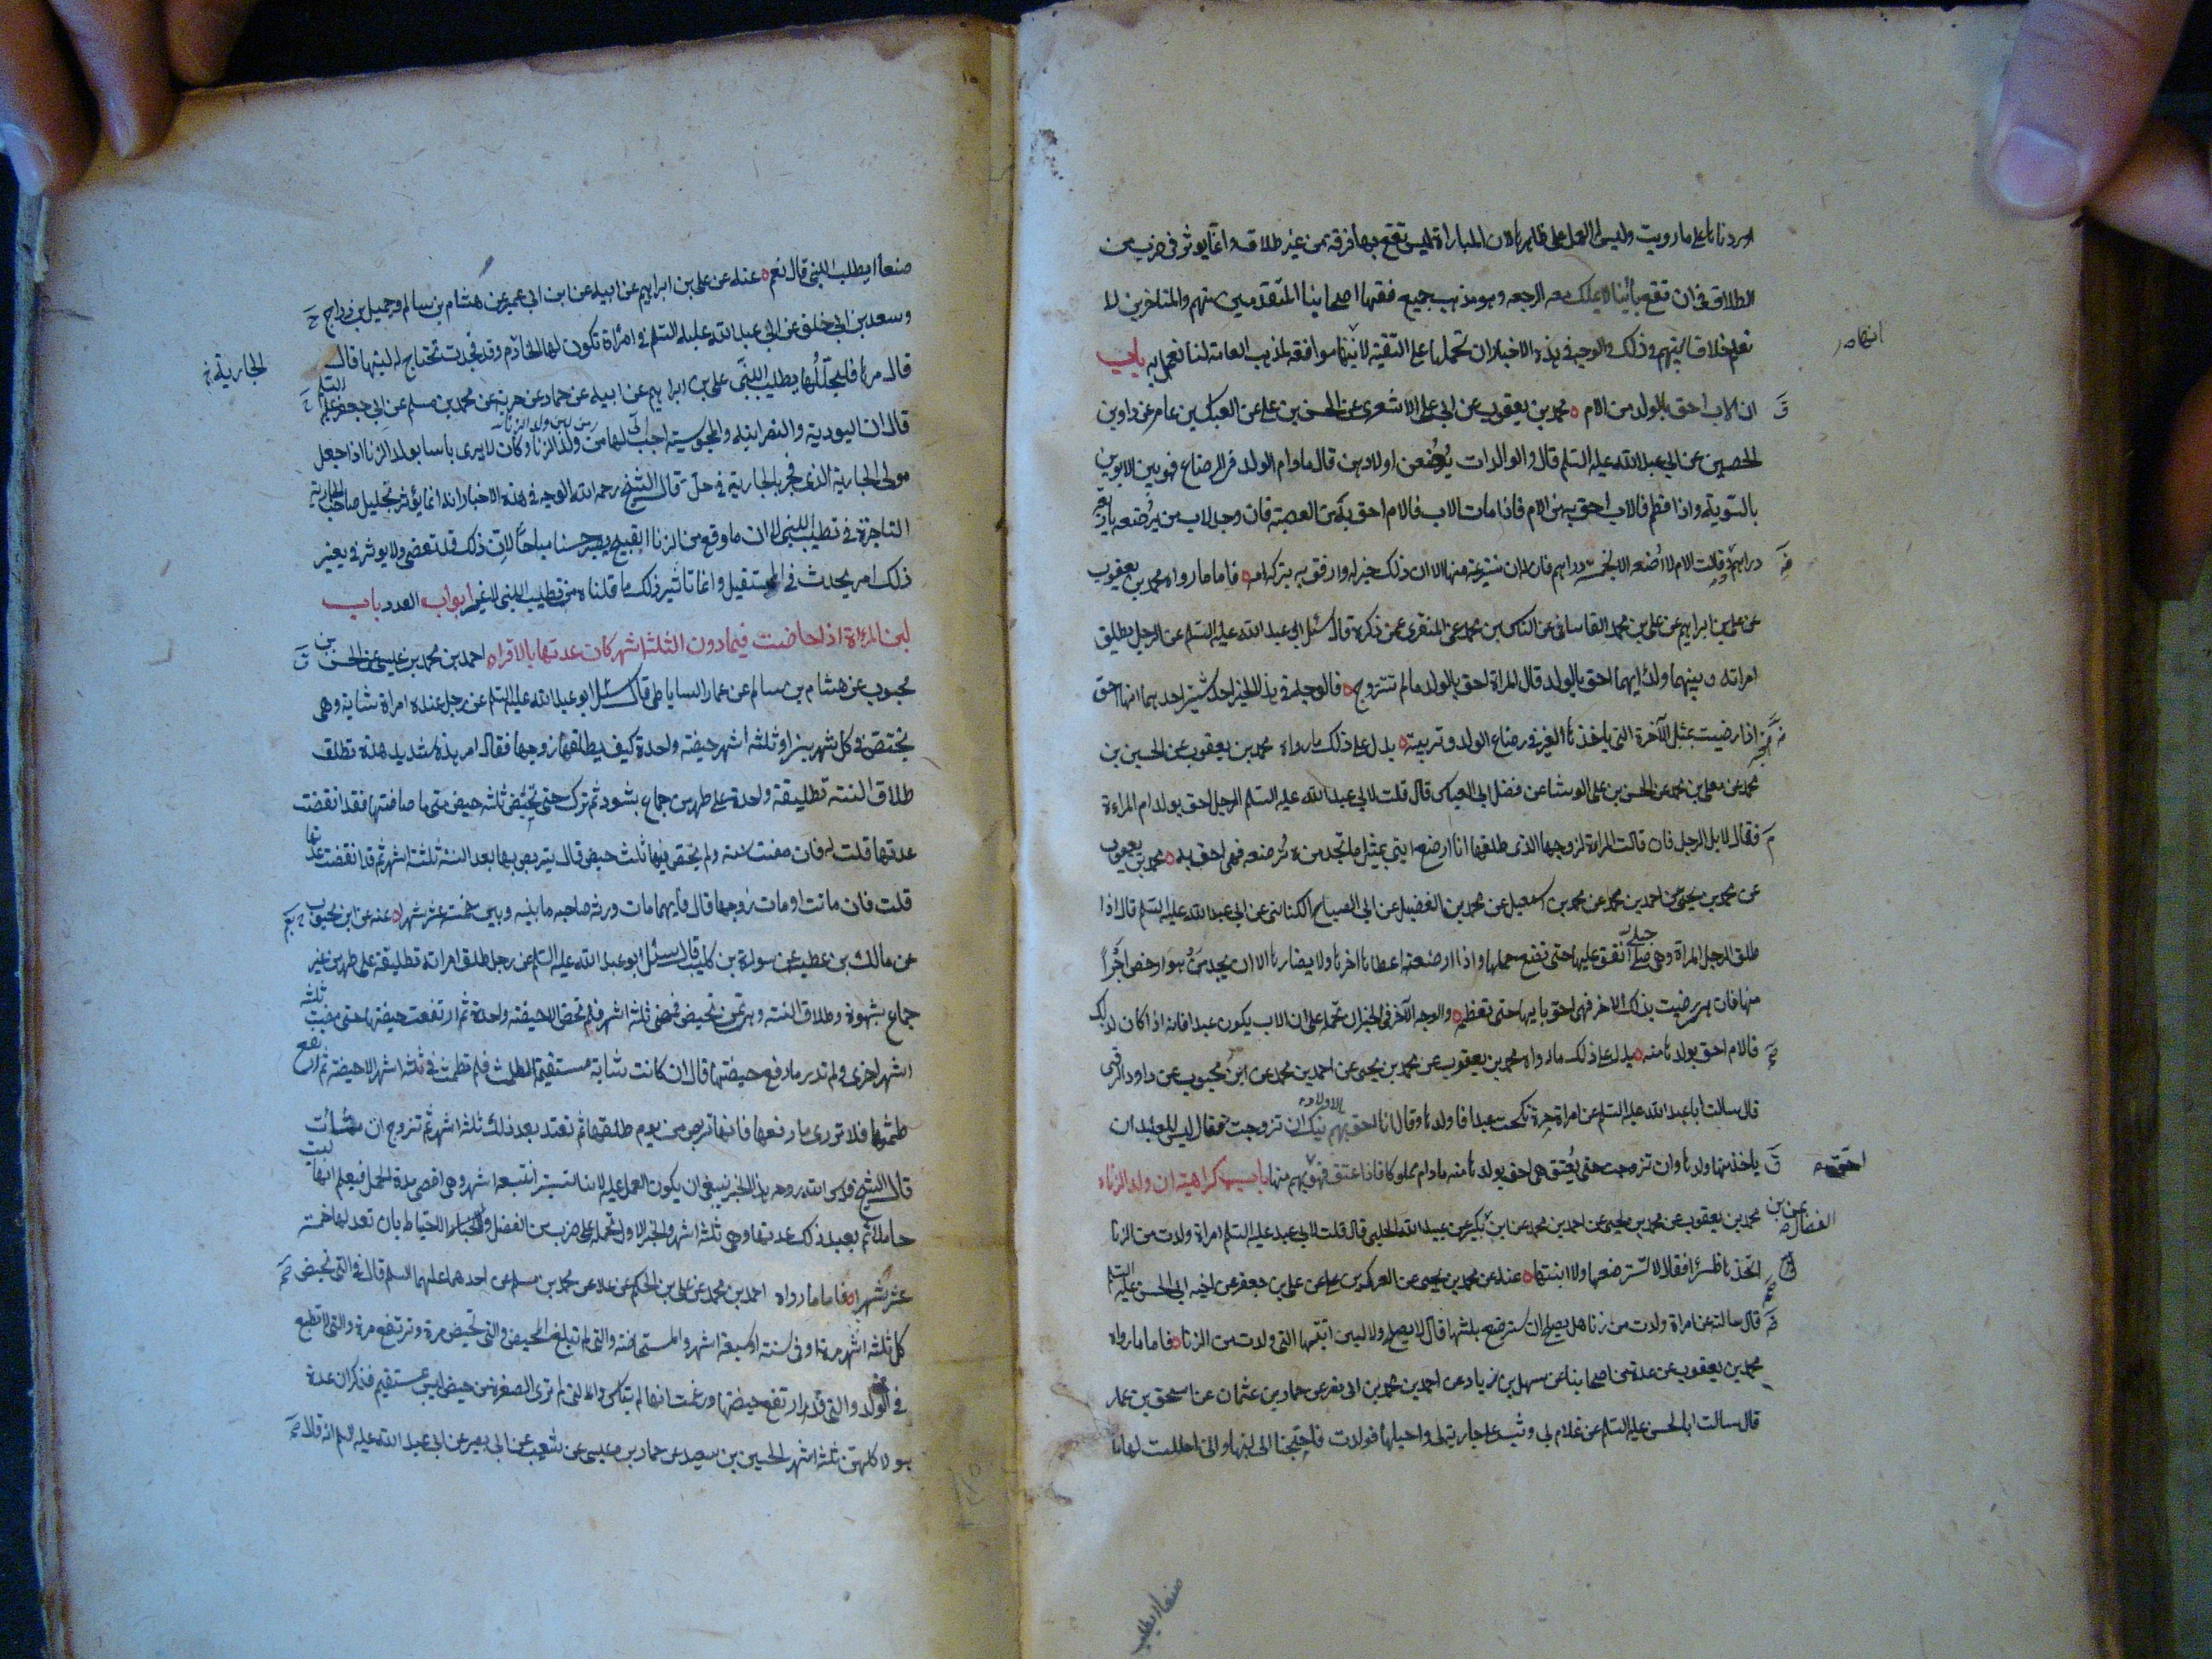 اوردناها على ما رويت وليس العمل على ظاهرها لان المباراة ليس تقع بها فرقة من غير طلاق وانما يوثر في ضرب من
الطلاق في ان تقع باينا لا يملك معه الرجعه وهو مذهب جميع فقهاء اصحابنا المتقدمين منهم والمتاخرين لا
نعلم خلافا بينهم في ذلك والوجه في هذه الاخبار ان نحملها على التقية لانها موافقه لمذهب العامة لسنا نعمل به باب
ان الاب احق بالولد من الام محمد بن يعقوب عن ابي على الاشعرى عن الحسن بن على عن العباس بن عامر عن داود بن
الحصين عن ابي عبدالله عليه السلم قال والوالدات يرضعن اولادهن قال مادام الولد في الرضاع فهو بين الابوين
بالسوية واذا فطم فالاب احق به من الام فاذا مات الاب فالام احق به من العصبة فان وجد الاب من يرضعه باربعة
دراهم وقالت الام لا ارضعه الا بخمسة دراهم فان له ان ينتزعه منها الا ان ذلك خير له وارفق به يتركه مع امه فاما ما رواه محمد بن يعقوب
عن على بن ابراهيم عن على بن محمد القاساني عن القاسم بن محمد عن المنقرى عمن ذكره قال سئل ابو عبد الله عليه السلم عن الرجل يطلق
امراته وبينهما ولد ايهما احق بالولد قال المراة احق بالولد ما لم تتزوج فالوجه في هذا الخبر احد شيئين احدهما انها احق
اذا رضيت بمثل الاجرة التي ياخذها الغير في رضاع الولد وتربيته يدل على ذلك ما رواه محمد بن يعقوب عن الحسين بن
محمد عن معلى بن محمد عن الحسن بن على الوشا عن فضل ابي العباس قال قلت لابي عبد الله عليه السلم الرجل احق بولده ام المراءة
فقال لا بل الرجل فان قالت المراة لزوجها الذى طلقها انا ارضع ابني بمثل ما تجد من ترضعه فهى احق به محمد بن يعقوب
عن محمد بن يحيى عن احمد بن محمد عن محمد بن اسمعيل عن محمد بن الفضيل عن ابي الصباح الكناني عن ابي عبد الله عليه السلم قال اذا
طلق الرجل المراة وهى حبلى انفق عليها حتى تضع حملها واذا ارضعته اعطاها اجرها ولا يضارها الا ان يجد من هو ارخص اجرا
منها فان هي رضيت بذلك الاجر فهى احق بابنها حتى تفطمه والوجه الآخر في الخبر ان نحمله على ان الاب يكون عبدا فانه اذا كان كذلك
فالام احق بولدها منه يدل على ذلك ما رواه محمد بن يعقوب عن محمد بن يحيى عن احمد بن محمد عن ابن محبوب عن داود الرقى
قال سالت ابا عبد الله عليه السلم عن امراة حرة نكحت عبدا فاولدها وقال انا احق بهم منك ان تزوجت فقال ليس للعبد ان
ياخذ منها ولدها وان تزوجت حتى يعتق هى احق بولدها منه مادام مملوكا فاذا اعتق فهو احق بهم منها باب كراهية لبن ولد الزناء
محمد بن يعقوب عن محمد بن يحيى عن احمد بن محمد عن ابن بكير عن عبيد الله الحلبى قال قلت لابي عبد عليه السلم امراة ولدت من الزنا
اتخذها ظئرا فقال لا تسترضعها ولا ابنتها عنه عن محمد بن يحيى عن العمركى بن على عن على بن جعفر عن اخيه ابي الحسن عليه السلم
قال سالته عن امراة ولدت من زنا هل يصلح ان تسترضع بلبنها قال لا يصلح ولا لبن ابنتها التى ولدت من الزنا فاما ما رواه
محمد بن يعقوب عن عدة من اصحابنا عن سهل بن زياد عن احمد بن محمد بن ابى نصر عن حماد بن عثمان عن اسحق بن عمار
قال سالت ابا الحسن عليه السلم عن غلام لى وثب على جارية لى فاحبلها فولدت فاحتجنا الى لبنها وانى احللت لهما ما
صنعا يطلب
صنعا ايطلب اللبن قال نعم عنه عن على بن ابراهيم عن ابيه عن ابن ابى عمير عن هشام بن سالم وجميل بن دراج
وسعد بن ابى خلف عن ابى عبد الله عليه السلم في امراة تكون لها الخادم وقد فجرت تحتاج له لبنها قال
الجارية
قال مرها فليحللها يطيب اللبن على بن ابراهيم عن ابيه عن حماد عن حريز عن محمد بن مسلم عن ابى جعفر عليه السلم
قال لبن اليهودية والنصرانية والمجوسية احب الى من ولد الزنا وكان لا يرى باسا بولد الزنا اذا جعل
مولى الجارية الذى فجر بالجارية في حل قال الشيخ رحمه الله الوجه في هذه الاخبار انه انما يؤثر تحليل صاحب الجارية
الفاجرة في تطييب اللبن لا ان ما وقع من الزنا القبيح يصير حسنا مباحا لان ذلك قد تقضى ولا يوثر في تغيير
ذلك امر يحدث في المستقبل وانما تاثير ذلك ما قلناه من تطييب اللبن لا غير ابواب العدد باب
ان المراة اذا حاضت فيما دون الثلثة اشهر كان عدتها بالاقراء احمد بن محمد بن عيسى عن الحسن بن
محبوب عن هشام بن سالم عن عمار الساباطى قال سئل ابو عبد الله عليه السلم عن رجل عنده امراة شابة وهى
تحيض في كل شهرين او ثلثه اشهر حيضة واحدة كيف يطلقها زوجها فقال امر هذه شديد هذه تطلق
طلاق السنة تطليقة واحدة على طهر من جماع بشهود ثم تترك حتى تحيض ثلثه حيض متى ما حاضتها فقد انقضت
عدتها قلت له فان مضت سنة ولم تحض فيها ثلث حيض قال يتربص بها بعد السنة ثلثة اشهر ثم قد انقضت عدتها
قلت فان ماتت او مات زوجها قال فايهما مات ورثه صاحبه ما بينه وبين خمسة عشر شهرا عنه عن ابن محبوب
عن مالك بن عطية عن سورة بن كليب قال سئل ابو عبد الله عليه السلم عن رجل طلق امراته تطليقة على طهر من غير
جماع بشهود طلاق السنة وهى ممن تحيض فمضى ثلثة اشهر فلم تحض الا حيضة واحدة ثم ارتفعت حيضتها حتى مضت ثلثة
اشهر اخرى ولم تدر ما رفع حيضتها قال ان كانت شابة مستقيمة الطمث فلم تطمث في ثلثه اشهر الا حيضة ثم ارتفع
طمثها فلا تدرى ما رفعها فانها تربص من يوم طلقها ثم تعتد بعد ذلك ثلثة اشهر ثم تزوج ان شائت
قال الشيخ قدس الله روحه هذا الخبر ينبغى ان يكون العمل عليه لانها تستبرئ بتسعة اشهر وهى اقصى مدة الحمل فيعلم انها ليست
حاملا ثم بعد ذلك عدتها وهى ثلثة اشهر والخبر الاول نحمله على ضرب من الفضل والاحتياط بان تعد لها خمسة
عشر شهرا فاما ما رواه احمد بن محمد عن على بن الحكم عن علا عن محمد بن مسلم عن احدهما عليهما السلم قال في التى تحيض
كل ثلثه اشهر مرة او في سنة او سبعة اشهر والمستحاضة والتى لم تبلغ الحيض والتى تحيض مرة وترتفع مرة والتى لا تطمع
في الولد والتى قد ارتفع حيضها وزعمت انها لم تياس والتى ترى الصفرة من حيض ليس بمستقيم فذكر ان عدة
هولا كلهن ثلثة اشهر الحسين بن سعيد عن حماد بن عيسى عن شعيب عن ابى بصير عن ابى عبد الله عليه السلم انه قال